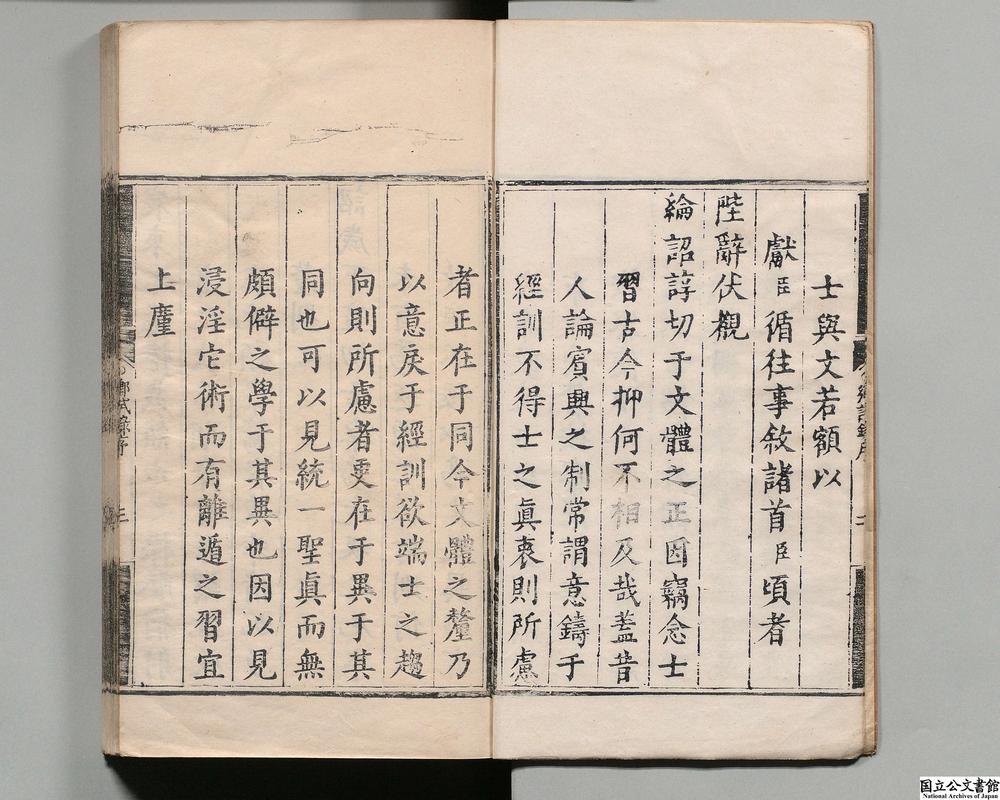 士與文若額以
獻臣循往事敘諸首臣頃者
陛辭伏覩
綸詔諄切于文體之正因竊念士
習古今抑何不相及哉蓋昔
人論賓興之制常謂意鑄于
經訓不得士之眞衷則所慮
者正在于同今文體之釐乃
以意戾于經訓欲端士之趨
向則所慮者更在于異于其
同也可以見統一聖眞而無
頗僻之學于其異也因以見
浸淫它術而有離遁之習宜
上廑
鄉試錄序
二
鄉試錄序
三
国立公文書館
National Archives of Japan